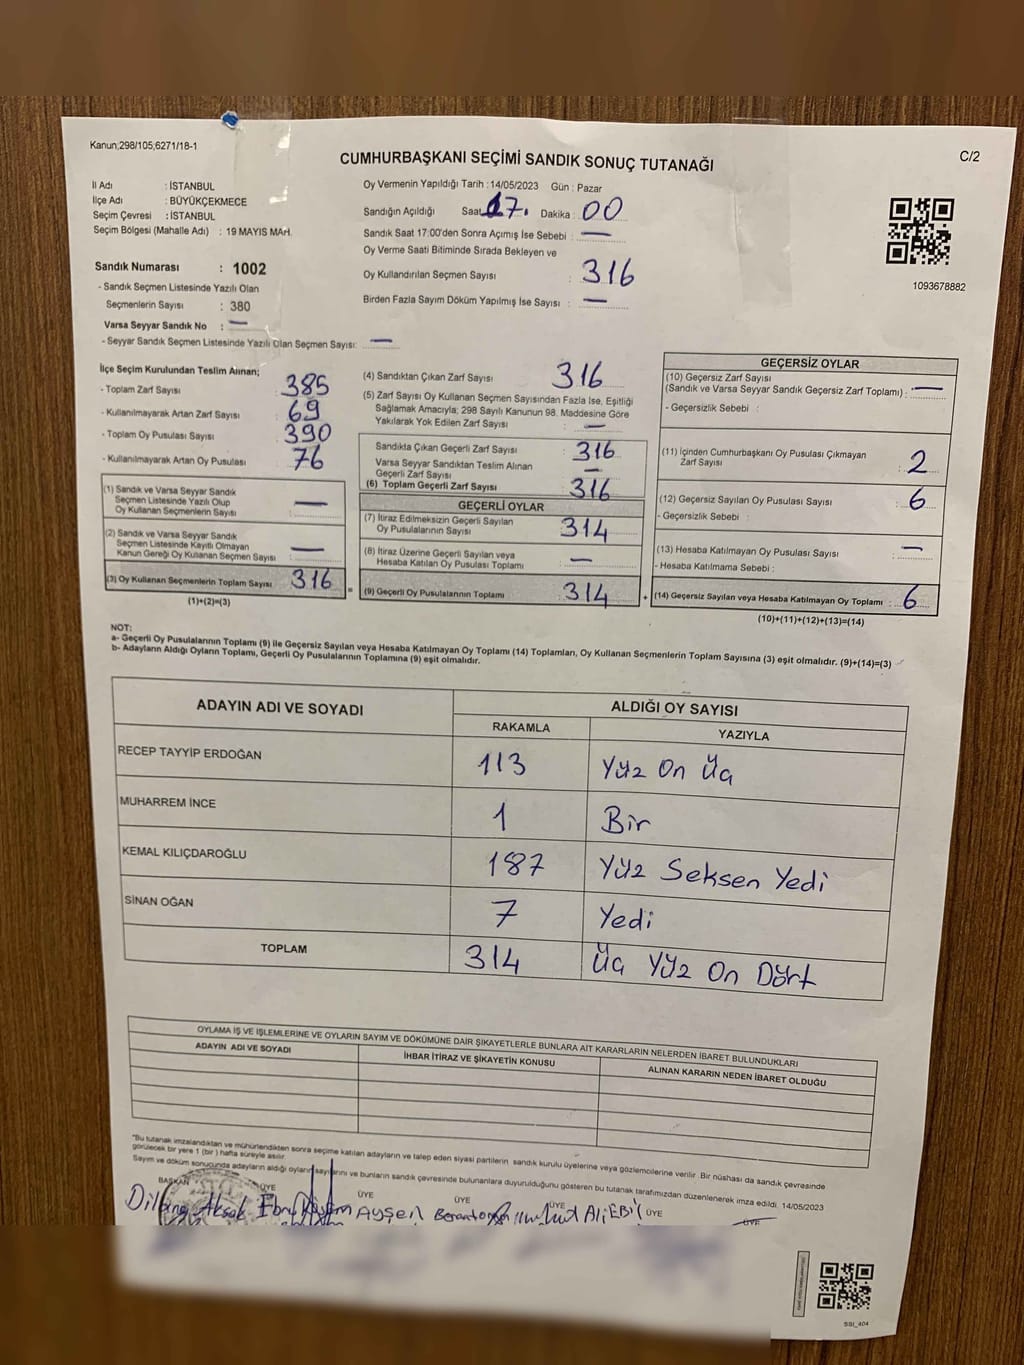 Kanun;298/105;6271/18-1
CUMHURBAŞKANI SEÇİMİ SANDIK SONUÇ TUTANAĞI
C/2
İl Adı : İSTANBUL
İlçe Adı : BÜYÜKÇEKMECE
Seçim Çevresi : İSTANBUL
Seçim Bölgesi (Mahalle Adı) : 19 MAYIS MAH.
Sandık Numarası : 1002
- Sandık Seçmen Listesinde Yazılı Olan
Seçmenlerin Sayısı : 380
Varsa Seyyar Sandık No : —
- Seyyar Sandık Seçmen Listesinde Yazılı Olan Seçmen Sayısı: —
Oy Vermenin Yapıldığı Tarih : 14/05/2023 Gün : Pazar
Sandığın Açıldığı Saat 17. Dakika : 00
Sandık Saat 17:00'den Sonra Açımış İse Sebebi : —
Oy Verme Saati Bitiminde Sırada Bekleyen ve
Oy Kullandırılan Seçmen Sayısı : 316
Birden Fazla Sayım Döküm Yapılmış İse Sayısı : —
1093678882
İlçe Seçim Kurulundan Teslim Alınan;
- Toplam Zarf Sayısı : 385
- Kullanılmayarak Artan Zarf Sayısı : 69
- Toplam Oy Pusulası Sayısı : 390
- Kullanılmayarak Artan Oy Pusulası : 76
(1) Sandık ve Varsa Seyyar Sandık
Seçmen Listesinde Yazılı Olup
Oy Kullanan Seçmenlerin Sayısı : —
(2) Sandık ve Varsa Seyyar Sandık
Seçmen Listesinde Kayıtlı Olmayan
Kanun Gereği Oy Kullanan Seçmen Sayısı : —
(3) Oy Kullanan Seçmenlerin Toplam Sayısı : 316
(1)+(2)=(3)
(4) Sandıktan Çıkan Zarf Sayısı : 316
(5) Zarf Sayısı Oy Kullanan Seçmen Sayısından Fazla İse, Eşitliği
Sağlamak Amacıyla; 298 Sayılı Kanunun 98. Maddesine Göre
Yakılarak Yok Edilen Zarf Sayısı : —
Sandıkta Çıkan Geçerli Zarf Sayısı : 316
Varsa Seyyar Sandıktan Teslim Alınan
Geçerli Zarf Sayısı : —
(6) Toplam Geçerli Zarf Sayısı : 316
GEÇERLİ OYLAR
(7) İtiraz Edilmeksizin Geçerli Sayılan
Oy Pusulalarının Sayısı : 314
(8) İtiraz Üzerine Geçerli Sayılan veya
Hesaba Katılan Oy Pusulası Toplamı : —
= (9) Geçerli Oy Pusulalarının Toplamı : 314
GEÇERSİZ OYLAR
(10) Geçersiz Zarf Sayısı
(Sandık ve Varsa Seyyar Sandık Geçersiz Zarf Toplamı) : —
- Geçersizlik Sebebi :
(11) İçinden Cumhurbaşkanı Oy Pusulası Çıkmayan
Zarf Sayısı : 2
(12) Geçersiz Sayılan Oy Pusulası Sayısı : 6
- Geçersizlik Sebebi :
(13) Hesaba Katılmayan Oy Pusulası Sayısı : —
- Hesaba Katılmama Sebebi :
+ (14) Geçersiz Sayılan veya Hesaba Katılmayan Oy Toplamı : 6
(10)+(11)+(12)+(13)=(14)
NOT:
a- Geçerli Oy Pusulalarının Toplamı (9) ile Geçersiz Sayılan veya Hesaba Katılmayan Oy Toplamı (14) Toplamları, Oy Kullanan Seçmenlerin Toplam Sayısına (3) eşit olmalıdır. (9)+(14)=(3)
b- Adayların Aldığı Oyların Toplamı, Geçerli Oy Pusulalarının Toplamına (9) eşit olmalıdır.
ADAYIN ADI VE SOYADI ALDIĞI OY SAYISI
RAKAMLA YAZIYLA
RECEP TAYYİP ERDOĞAN 113 Yüz On Üç
MUHARREM İNCE 1 Bir
KEMAL KILIÇDAROĞLU 187 Yüz Seksen Yedi
SİNAN OĞAN 7 Yedi
TOPLAM 314 Üç Yüz On Dört
OYLAMA İŞ VE İŞLEMLERİNE VE OYLARIN SAYIM VE DÖKÜMÜNE DAİR ŞİKAYETLERLE BUNLARA AİT KARARLARIN NELERDEN İBARET BULUNDUKLARI
ADAYIN ADI VE SOYADI İHBAR İTİRAZ VE ŞİKAYETİN KONUSU ALINAN KARARIN NEDEN İBARET OLDUĞU
"Bu tutanak imzalandıktan ve mühürlendikten sonra seçime katılan adayların ve talep eden siyasi partilerin sandık kurulu üyelerine veya gözlemcilerine verilir. Bir nüshası da sandık çevresinde
görülecek bir yere 1 (bir) hafta süreyle asılır.
Sayım ve döküm sonucunda adayların aldığı oyların sayılarını ve bunların sandık çevresinde bulunanlara duyurulduğunu gösteren bu tutanak tarafımızdan düzenlenerek imza edildi. 14/05/2023
BAŞKAN ÜYE ÜYE ÜYE ÜYE ÜYE ÜYE
Aksak Ebru Ayşen Ali EBİL
SSI_404